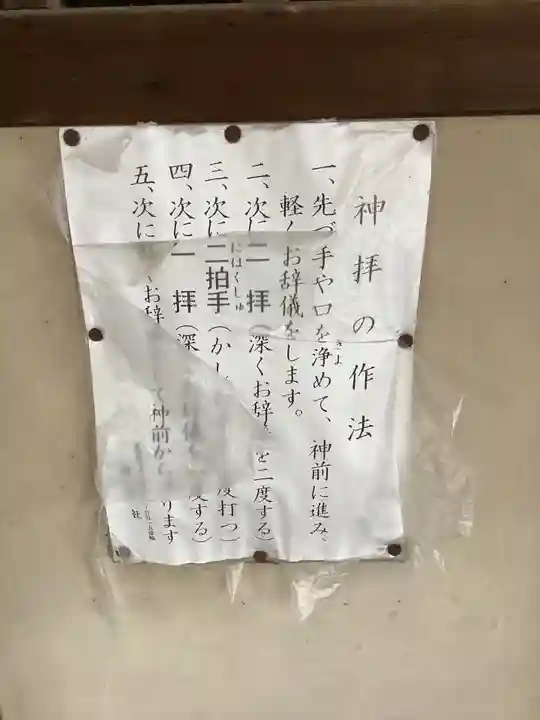 神拝の作法
一、先づ手や口を浄めて、神前に進み、
きよ
軽くお辞儀をします。
二、次に二拝(深くお辞を二度する)
三、次に二拍手(かし度打つ)
にはくしゅ
四、次に一拝(深度する)
五、次に、お辞て神前かります
社